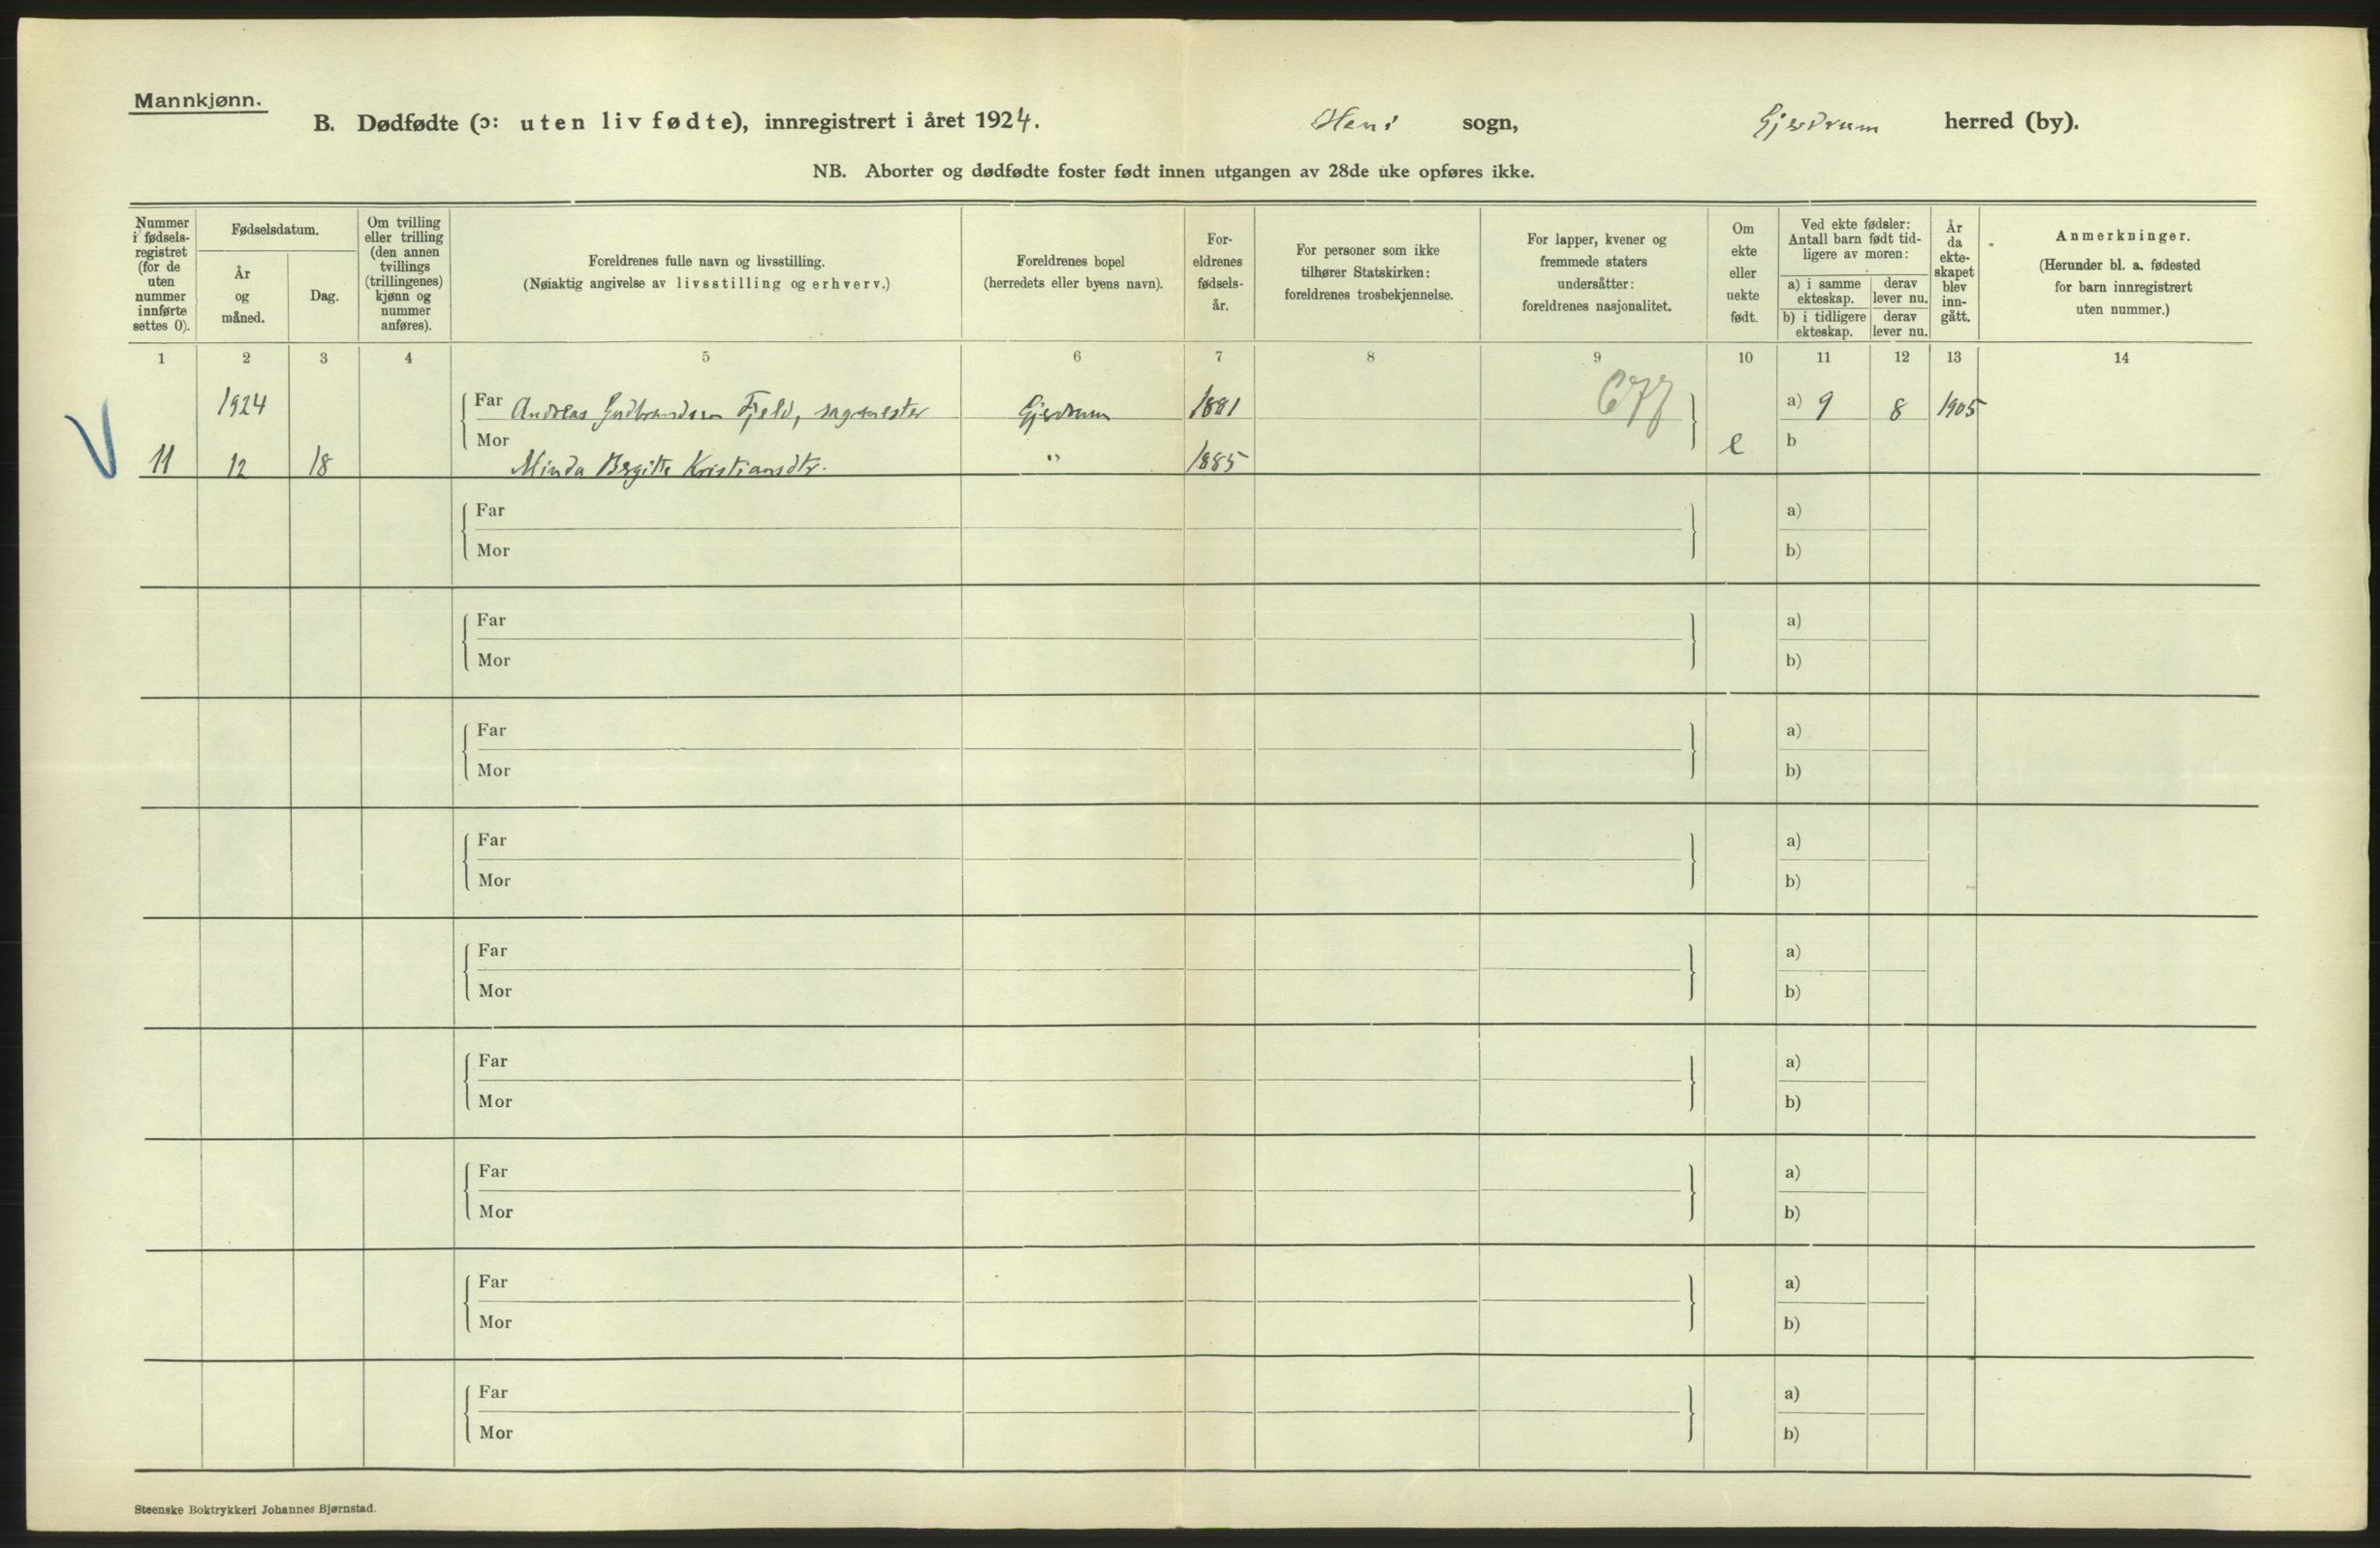 Mannkjønn.
B. Dødfødte (ɔ: uten liv fødte), innregistrert i året 1924. Heni sogn, Gjerdrum herred (by).
NB. Aborter og dødfødte foster født innen utgangen av 28de uke opføres ikke.
Nummer i fødsels-registret (for de uten nummer innførte settes 0).
Fødselsdatum.
År og måned.
Dag.
Om tvilling eller trilling (den annen tvillings (trillingenes) kjønn og nummer anføres).
Foreldrenes fulle navn og livsstilling.
(Nøiaktig angivelse av livsstilling og erhverv.)
Foreldrenes bopel
(herredets eller byens navn).
For-eldrenes fødsels-år.
For personer som ikke tilhører Statskirken: foreldrenes trosbekjennelse.
For lapper, kvener og fremmede staters undersåtter: foreldrenes nasjonalitet.
Om ekte eller uekte født.
Ved ekte fødsler: Antall barn født tid-ligere av moren:
a) i samme ekteskap.
derav lever nu.
b) i tidligere ekteskap.
derav lever nu.
År da ekte-skapet blev inn-gått.
Anmerkninger.
(Herunder bl. a. fødested for barn innregistrert uten nummer.)
1 2 3 4 5 6 7 8 9 10 11 12 13 14
1924 Far Andreas Gudbrandsen Fjeld, sagmester Gjerdrum 1881 677 a) 9 8 1905
11 12 18 Mor Minda Bergitte Kristiansdtr. " 1885 e b
Far a)
Mor b)
Far a)
Mor b)
Far a)
Mor b)
Far a)
Mor b)
Far a)
Mor b)
Far a)
Mor b)
Far a)
Mor b)
Far a)
Mor b)
Far a)
Mor b)
Steenske Boktrykkeri Johannes Bjørnstad.